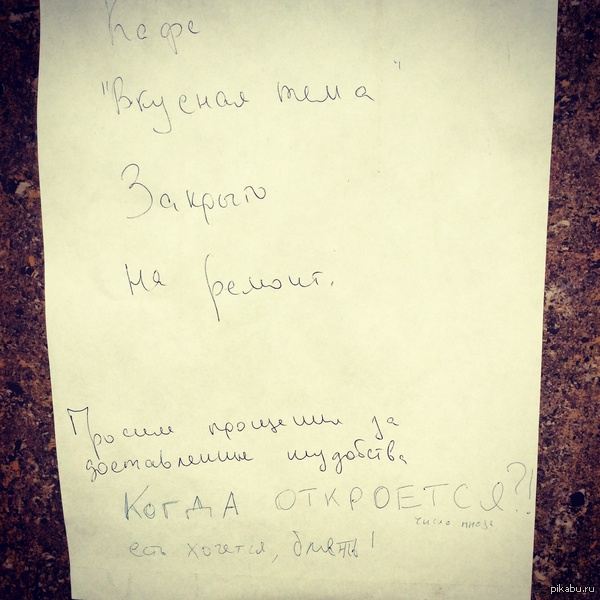 Кафе
"Вкусная тема"
Закрыто
на ремонт.
Просим прощения за
доставленные неудобства
КОГДА ОТКРОЕТСЯ?!
число
есть хочется, блять!
pikabu.ru